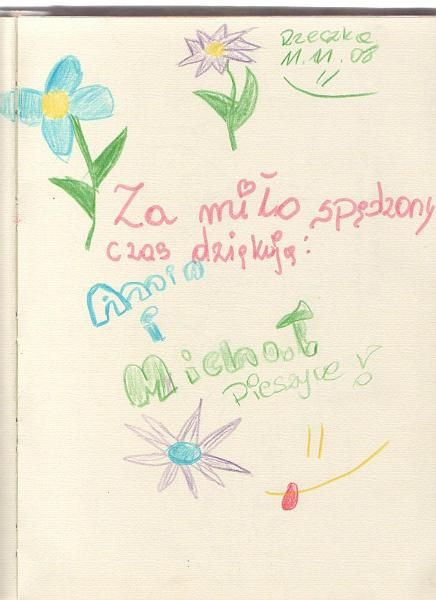 Rzeczka
11.11.08
Za miło spędzony
czas dziękują:
Ania
i
Michał
Pieszyce!